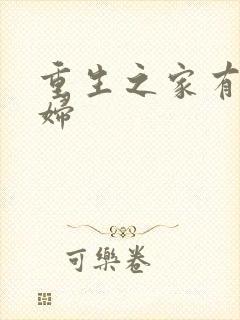 重生之家有
婦
可樂卷